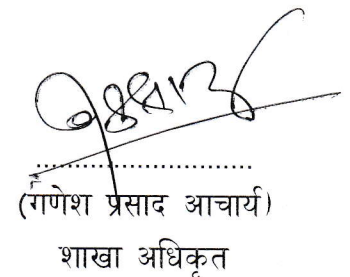 ..............................
(गणेश प्रसाद आचार्य)
शाखा अधिकृत